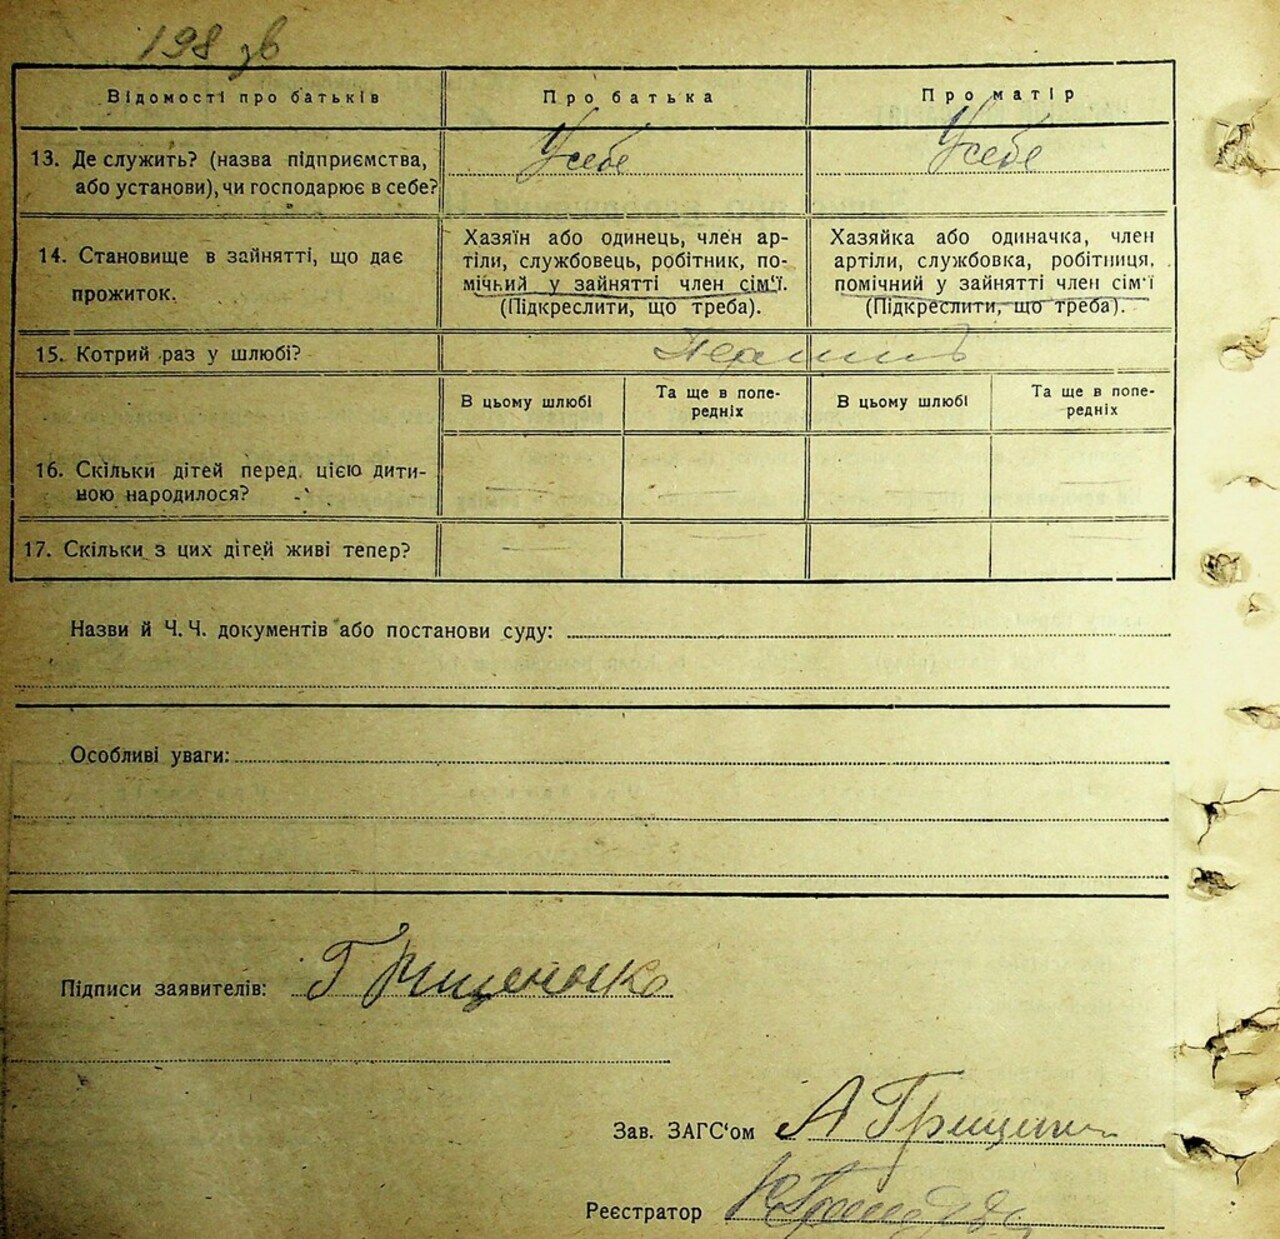 198 зв
Відомості про батьків
Про батька
Про матір
13. Де служить? (назва підприємства,
або установи), чи господарює в себе?
У себе
У себе
14. Становище в зайнятті, що дає
прожиток.
Хазяїн або одинець, член ар-
тіли, службовець, робітник, по-
мічний у зайнятті член сім'ї.
(Підкреслити, що треба).
Хазяйка або одиначка, член
артіли, службовка, робітниця,
помічний у зайнятті член сім'ї
(Підкреслити, що треба).
15. Котрий раз у шлюбі?
В цьому шлюбі
Та ще в попе-
редніх
В цьому шлюбі
Та ще в попе-
редніх
16. Скільки дітей перед цією дити-
ною народилося?
17. Скільки з цих дітей живі тепер?
Назви й Ч. Ч. документів або постанови суду:
Особливі уваги:
Підписи заявителів: Грищенко
Зав. ЗАГС'ом
Реєстратор